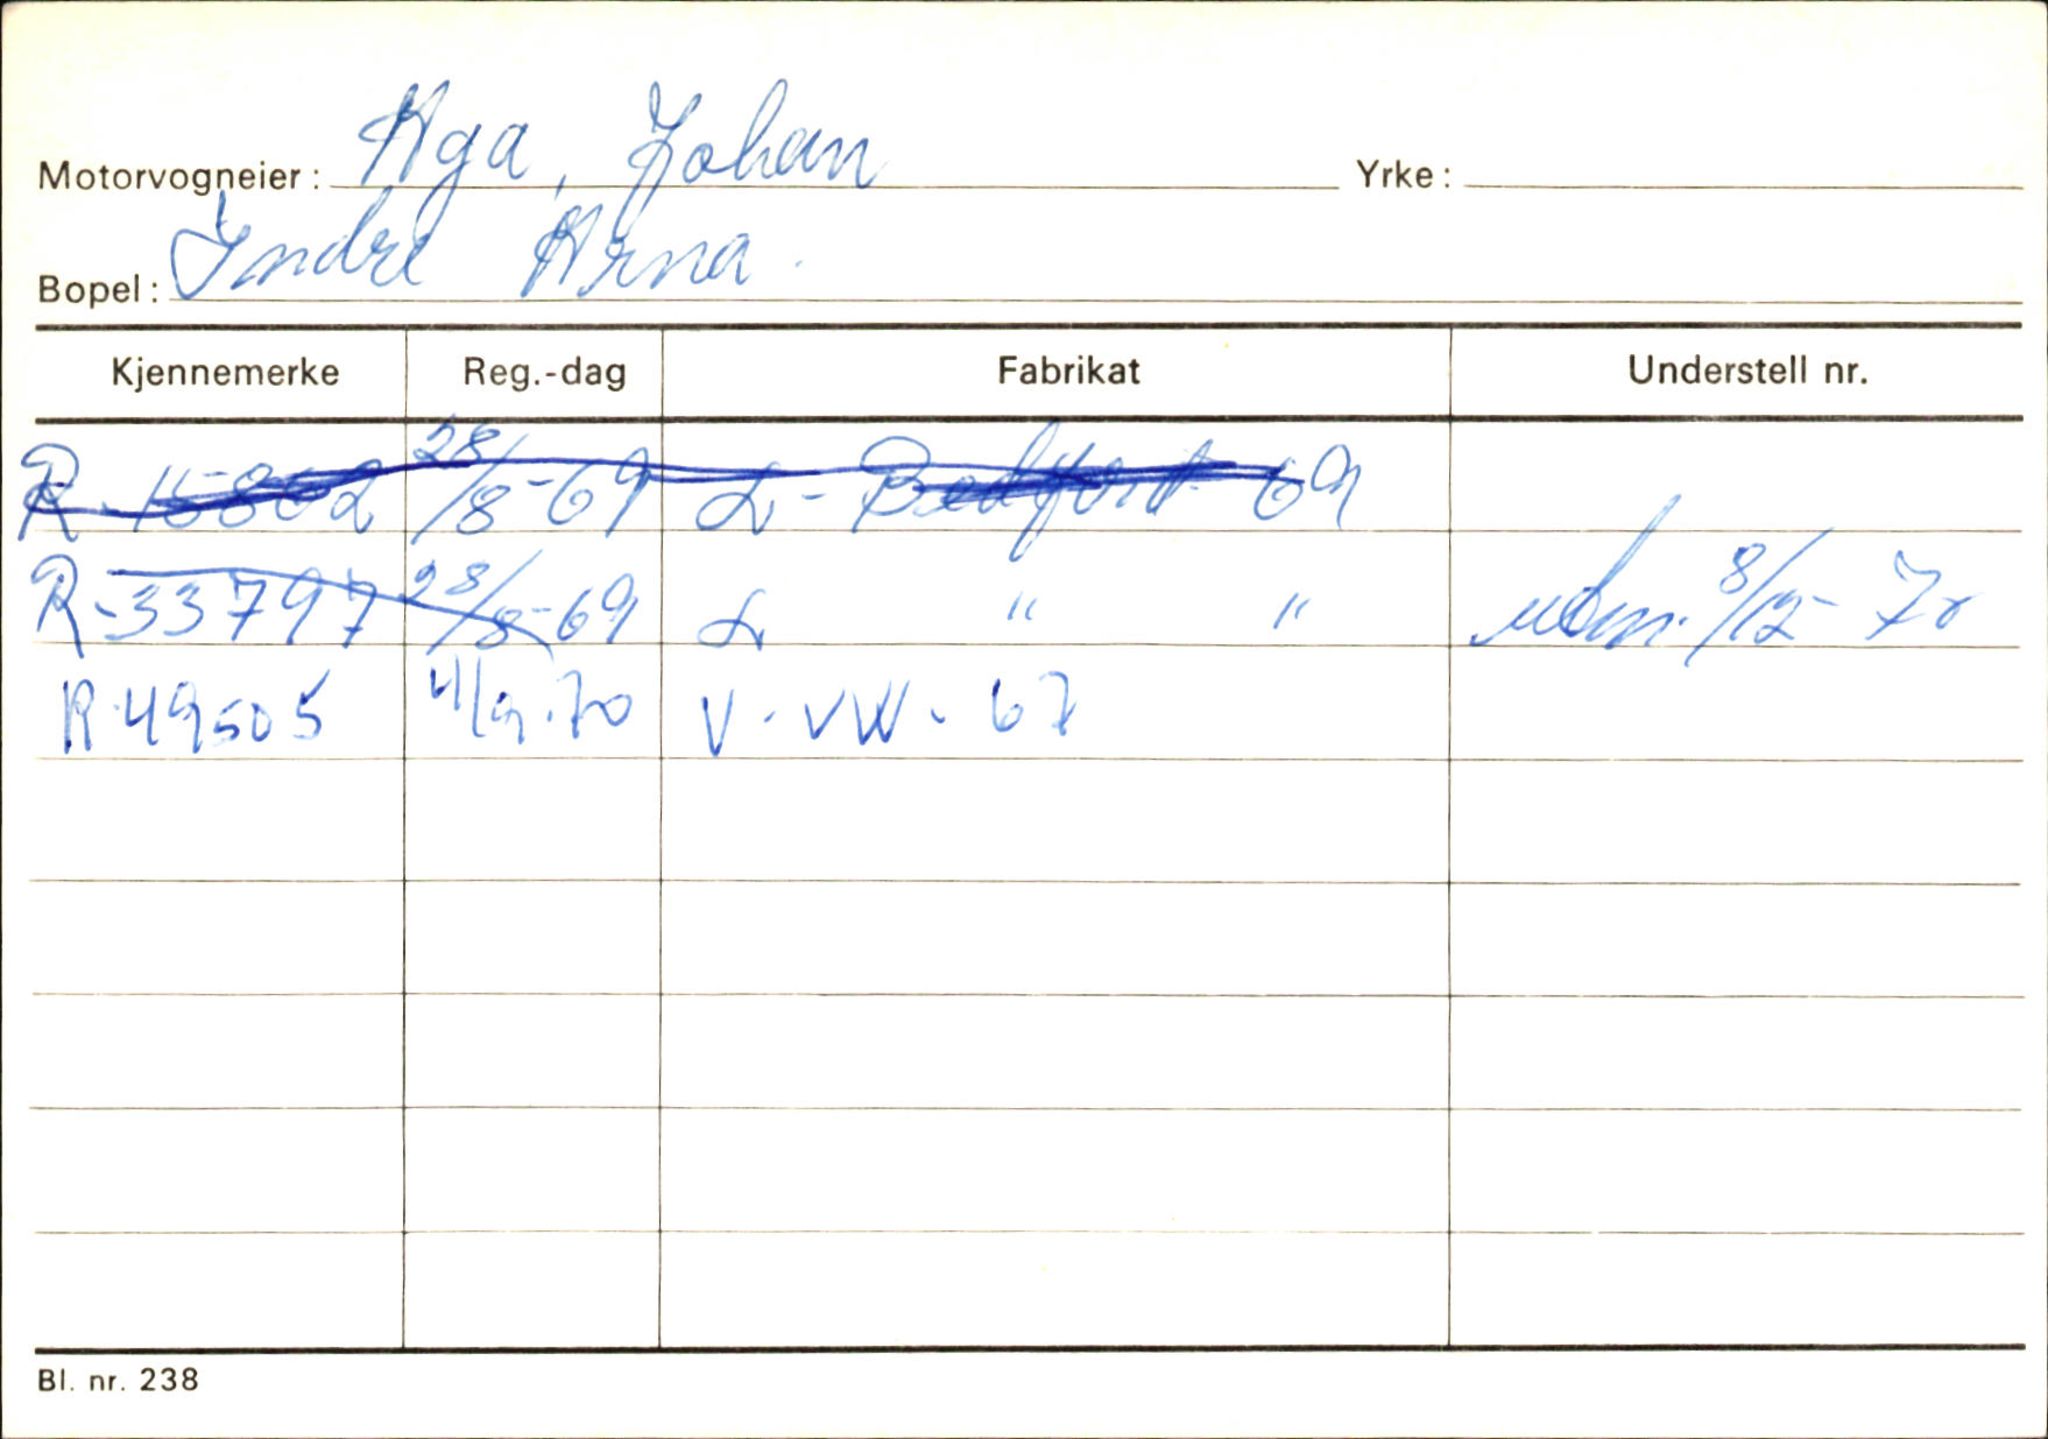 Motorvogneier: Aga, Johan Yrke:
Bopel: Indre Arna.
Kjennemerke Reg.-dag Fabrikat Understell nr.
R-15802 28/8-69 L-Bedford 69
R-33797 28/8-69 L " " utm. 8/12-70
R-49505 4/9-70 V-VW-67
Bl. nr. 238